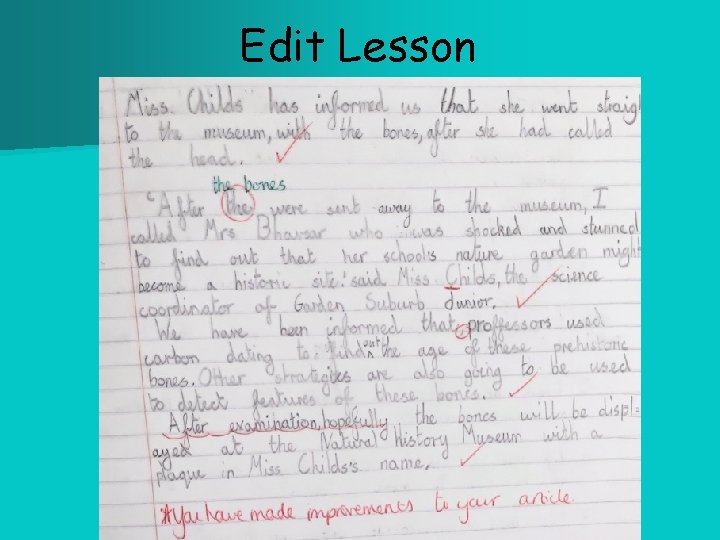 Edit Lesson
Miss Childs has informed us that she went straig
to the museum, with the bones, after she had called
the head.
the bones
"After the were sent away to the museum, I
called Mrs Bhavsar who was shocked and stunned
to find out that her school's nature garden might
become a historic site." said Miss Childs, the science
coordinator of Garden Suburb Junior.
We have been informed that proffessors used
carbon dating to find out the age of these prehistoric
bones. Other strategies are also going to be used
to detect features of these bones.
After examination, hopefully the bones will be displ-
ayed at the Natural History Museum with a
plaque in Miss Childs's name.
*You have made improvements to your article